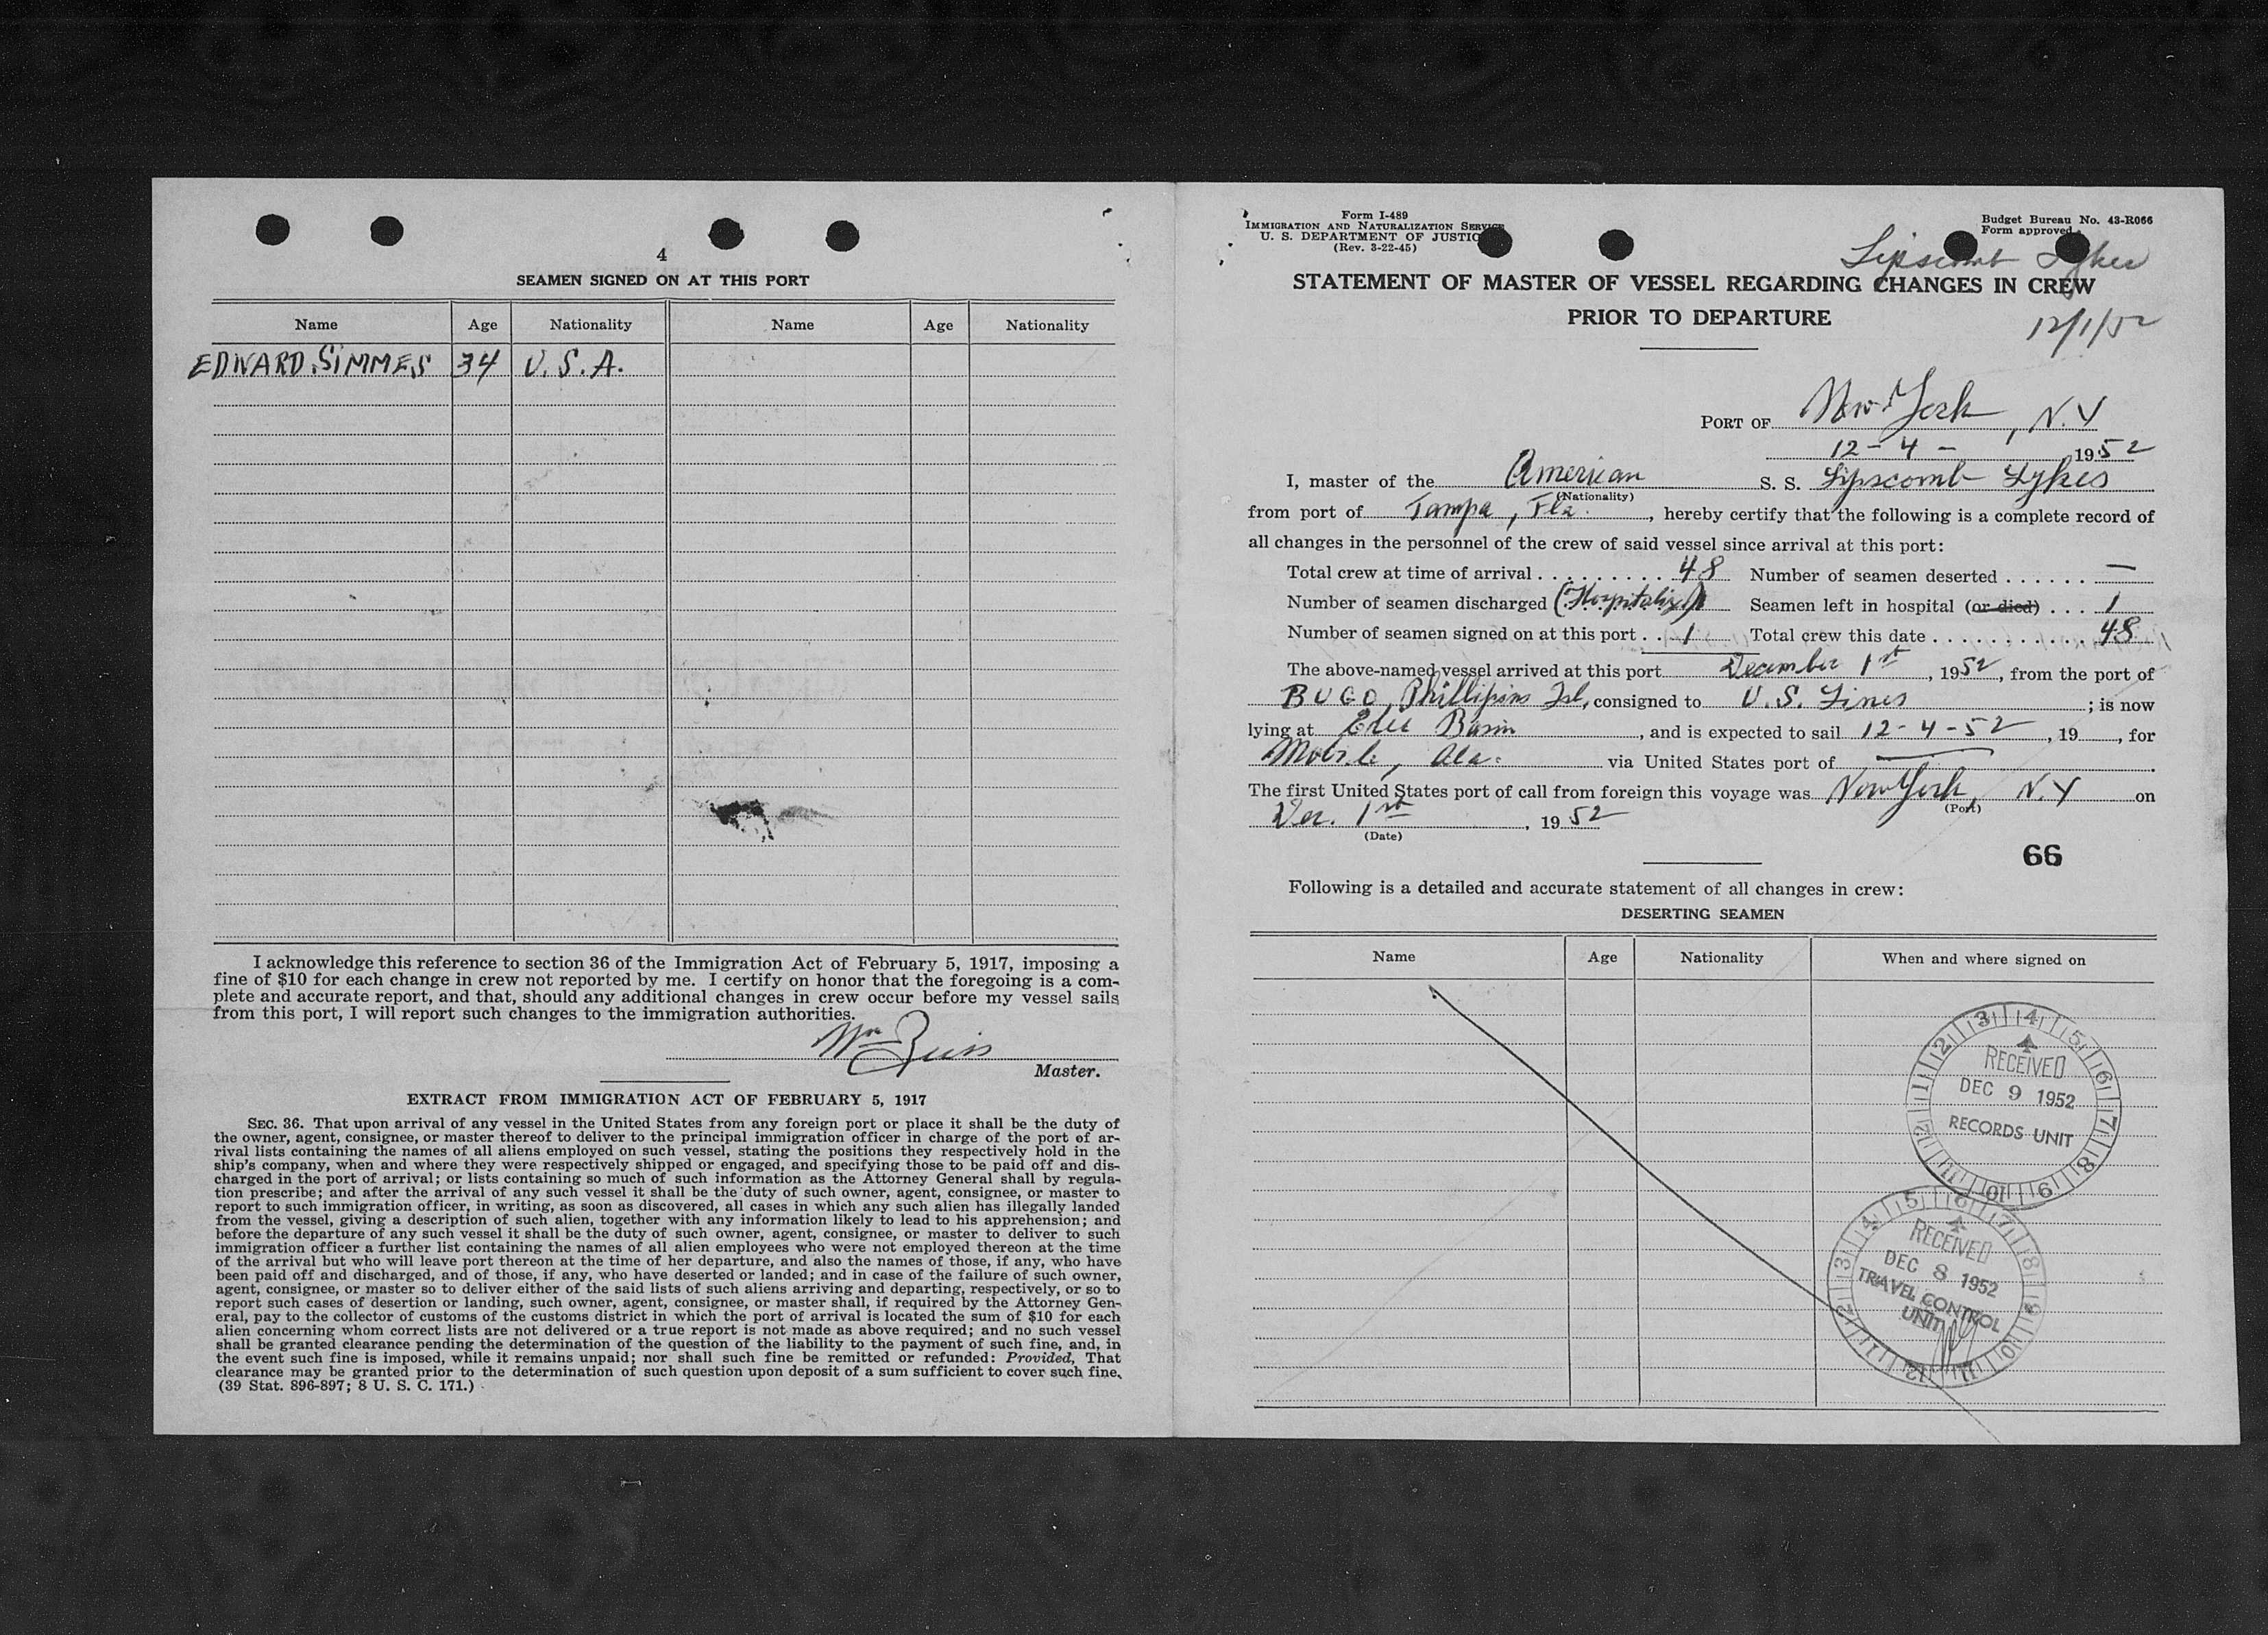 4
SEAMEN SIGNED ON AT THIS PORT
Name Age Nationality Name Age Nationality
EDWARD SIMMES 34 U.S.A.
I acknowledge this reference to section 36 of the Immigration Act of February 5, 1917, imposing a
fine of $10 for each change in crew not reported by me. I certify on honor that the foregoing is a com-
plete and accurate report, and that, should any additional changes in crew occur before my vessel sails
from this port, I will report such changes to the immigration authorities.
Wm
Master.
EXTRACT FROM IMMIGRATION ACT OF FEBRUARY 5, 1917
SEC. 36. That upon arrival of any vessel in the United States from any foreign port or place it shall be the duty of
the owner, agent, consignee, or master thereof to deliver to the principal immigration officer in charge of the port of ar-
rival lists containing the names of all aliens employed on such vessel, stating the positions they respectively hold in the
ship's company, when and where they were respectively shipped or engaged, and specifying those to be paid off and dis-
charged in the port of arrival; or lists containing so much of such information as the Attorney General shall by regula-
tion prescribe; and after the arrival of any such vessel it shall be the duty of such owner, agent, consignee, or master to
report to such immigration officer, in writing, as soon as discovered, all cases in which any such alien has illegally landed
from the vessel, giving a description of such alien, together with any information likely to lead to his apprehension; and
before the departure of any such vessel it shall be the duty of such owner, agent, consignee, or master to deliver to such
immigration officer a further list containing the names of all alien employees who were not employed thereon at the time
of the arrival but who will leave port thereon at the time of her departure, and also the names of those, if any, who have
been paid off and discharged, and of those, if any, who have deserted or landed; and in case of the failure of such owner,
agent, consignee, or master so to deliver either of the said lists of such aliens arriving and departing, respectively, or so to
report such cases of desertion or landing, such owner, agent, consignee, or master shall, if required by the Attorney Gen-
eral, pay to the collector of customs of the customs district in which the port of arrival is located the sum of $10 for each
alien concerning whom correct lists are not delivered or a true report is not made as above required; and no such vessel
shall be granted clearance pending the determination of the question of the liability to the payment of such fine, and, in
the event such fine is imposed, while it remains unpaid; nor shall such fine be remitted or refunded: Provided, That
clearance may be granted prior to the determination of such question upon deposit of a sum sufficient to cover such fine.
(39 Stat. 896-897; 8 U. S. C. 171.)
Form I-489
IMMIGRATION AND NATURALIZATION SERVICE
U. S. DEPARTMENT OF JUSTIC
(Rev. 3-22-45)
Budget Bureau No. 43-R066
Form approved.
Lipscomb Lykes
STATEMENT OF MASTER OF VESSEL REGARDING CHANGES IN CREW
PRIOR TO DEPARTURE
12/1/52
PORT OF New York, N.Y
12-4- 1952
I, master of the American S. S. Lipscomb Lykes
(Nationality)
from port of Tampa, Fla., hereby certify that the following is a complete record of
all changes in the personnel of the crew of said vessel since arrival at this port:
Total crew at time of arrival 48 Number of seamen deserted —
Number of seamen discharged (Hospitalized) Seamen left in hospital (or died) 1
Number of seamen signed on at this port 1 Total crew this date 48
The above-named vessel arrived at this port December 1st, 1952, from the port of
BUGO, Phillipins Isl, consigned to U.S. Lines; is now
lying at Erie Basin, and is expected to sail 12-4-52, 19 , for
Mobile, Ala. via United States port of —
The first United States port of call from foreign this voyage was New York, N.Y on
(Port)
Dec. 1st, 1952
(Date)
66
Following is a detailed and accurate statement of all changes in crew:
DESERTING SEAMEN
Name Age Nationality When and where signed on
1 2 3 4 5 6 7 8 9 10 11 12
RECEIVED
DEC 9 1952
RECORDS UNIT
1 2 3 4 5 6 7 8 9 10 11 12
RECEIVED
DEC 8 1952
TRAVEL CONTROL
UNIT